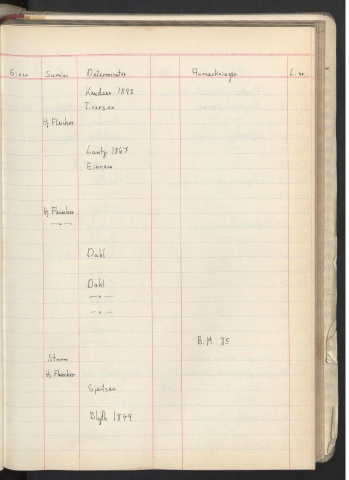 Giver Samler Determinator Anmerkninger L. nr.
Knudsen 1893
Iversen
Hj. Fleischer
Lantz 1867
Einarsen
Hj. Fleischer
—"—
Dahl
Dahl
—"—
—"—
B.M. 85
Storm
Hj. Fleischer
Gjertsen
Blytt 1849